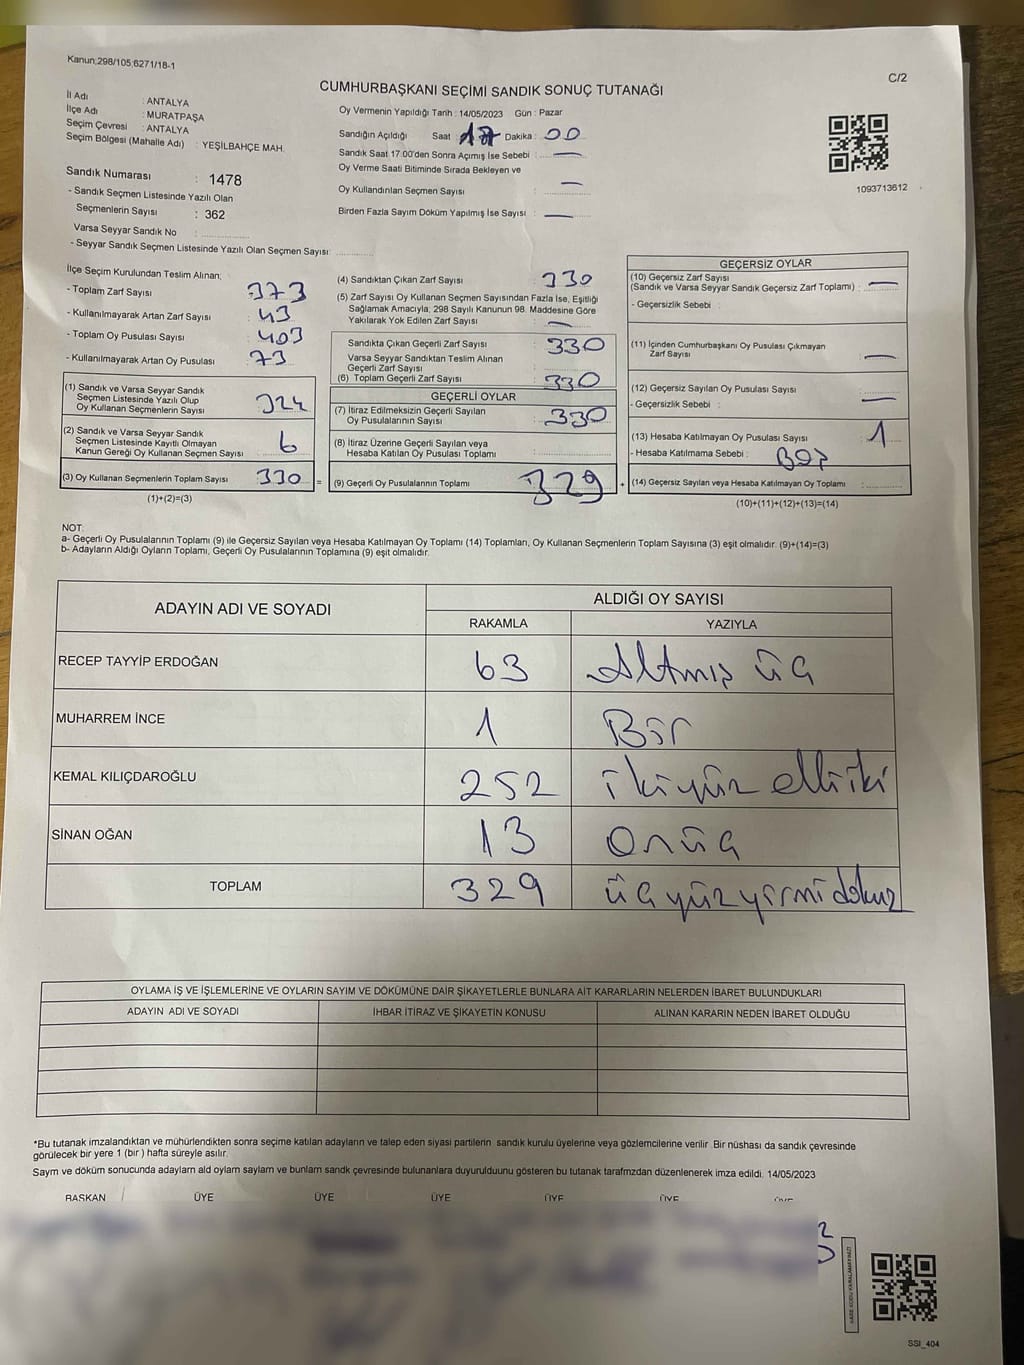 Kanun:298/105;6271/18-1
C/2
CUMHURBAŞKANI SEÇİMİ SANDIK SONUÇ TUTANAĞI
İl Adı : ANTALYA
İlçe Adı : MURATPAŞA
Seçim Çevresi : ANTALYA
Seçim Bölgesi (Mahalle Adı) : YEŞİLBAHÇE MAH.
Sandık Numarası : 1478
- Sandık Seçmen Listesinde Yazılı Olan
Seçmenlerin Sayısı : 362
Varsa Seyyar Sandık No :
- Seyyar Sandık Seçmen Listesinde Yazılı Olan Seçmen Sayısı:
Oy Vermenin Yapıldığı Tarih : 14/05/2023 Gün : Pazar
Sandığın Açıldığı Saat : 17 Dakika : 00
Sandık Saat 17:00'den Sonra Açımış İse Sebebi : —
Oy Verme Saati Bitiminde Sırada Bekleyen ve
Oy Kullandırılan Seçmen Sayısı : —
Birden Fazla Sayım Döküm Yapılmış İse Sayısı : —
1093713612
İlçe Seçim Kurulundan Teslim Alınan;
- Toplam Zarf Sayısı : 373
- Kullanılmayarak Artan Zarf Sayısı : 43
- Toplam Oy Pusulası Sayısı : 403
- Kullanılmayarak Artan Oy Pusulası : 73
(1) Sandık ve Varsa Seyyar Sandık
Seçmen Listesinde Yazılı Olup
Oy Kullanan Seçmenlerin Sayısı : 324
(2) Sandık ve Varsa Seyyar Sandık
Seçmen Listesinde Kayıtlı Olmayan
Kanun Gereği Oy Kullanan Seçmen Sayısı : 6
(3) Oy Kullanan Seçmenlerin Toplam Sayısı : 330 =
(1)+(2)=(3)
(4) Sandıktan Çıkan Zarf Sayısı : 330
(5) Zarf Sayısı Oy Kullanan Seçmen Sayısından Fazla İse, Eşitliği
Sağlamak Amacıyla; 298 Sayılı Kanunun 98. Maddesine Göre
Yakılarak Yok Edilen Zarf Sayısı : —
Sandıkta Çıkan Geçerli Zarf Sayısı : 330
Varsa Seyyar Sandıktan Teslim Alınan
Geçerli Zarf Sayısı
(6) Toplam Geçerli Zarf Sayısı : 330
GEÇERLİ OYLAR
(7) İtiraz Edilmeksizin Geçerli Sayılan
Oy Pusulalarının Sayısı : 330
(8) İtiraz Üzerine Geçerli Sayılan veya
Hesaba Katılan Oy Pusulası Toplamı :
(9) Geçerli Oy Pusulalarının Toplamı : 329 +
GEÇERSİZ OYLAR
(10) Geçersiz Zarf Sayısı
(Sandık ve Varsa Seyyar Sandık Geçersiz Zarf Toplamı) : —
- Geçersizlik Sebebi :
(11) İçinden Cumhurbaşkanı Oy Pusulası Çıkmayan
Zarf Sayısı : —
(12) Geçersiz Sayılan Oy Pusulası Sayısı
- Geçersizlik Sebebi : —
(13) Hesaba Katılmayan Oy Pusulası Sayısı : 1
- Hesaba Katılmama Sebebi : BOŞ
(14) Geçersiz Sayılan veya Hesaba Katılmayan Oy Toplamı :
(10)+(11)+(12)+(13)=(14)
NOT:
a- Geçerli Oy Pusulalarının Toplamı (9) ile Geçersiz Sayılan veya Hesaba Katılmayan Oy Toplamı (14) Toplamları, Oy Kullanan Seçmenlerin Toplam Sayısına (3) eşit olmalıdır. (9)+(14)=(3)
b- Adayların Aldığı Oyların Toplamı, Geçerli Oy Pusulalarının Toplamına (9) eşit olmalıdır.
ADAYIN ADI VE SOYADI
ALDIĞI OY SAYISI
RAKAMLA YAZIYLA
RECEP TAYYİP ERDOĞAN 63 Altmış üç
MUHARREM İNCE 1 Bir
KEMAL KILIÇDAROĞLU 252 iki yüz elli iki
SİNAN OĞAN 13 On üç
TOPLAM 329 üç yüz yirmi dokuz
OYLAMA İŞ VE İŞLEMLERİNE VE OYLARIN SAYIM VE DÖKÜMÜNE DAİR ŞİKAYETLERLE BUNLARA AİT KARARLARIN NELERDEN İBARET BULUNDUKLARI
ADAYIN ADI VE SOYADI İHBAR İTİRAZ VE ŞİKAYETİN KONUSU ALINAN KARARIN NEDEN İBARET OLDUĞU
*Bu tutanak imzalandıktan ve mühürlendikten sonra seçime katılan adayların ve talep eden siyasi partilerin sandık kurulu üyelerine veya gözlemcilerine verilir. Bir nüshası da sandık çevresinde
görülecek bir yere 1 (bir) hafta süreyle asılır.
Sayım ve döküm sonucunda adaylarn ald oylarn saylarn ve bunlarn sandk çevresinde bulunanlara duyurulduunu gösteren bu tutanak tarafmzdan düzenlenerek imza edildi. 14/05/2023
BAŞKAN ÜYE ÜYE ÜYE ÜYE ÜYE ÜYE
SSI_404